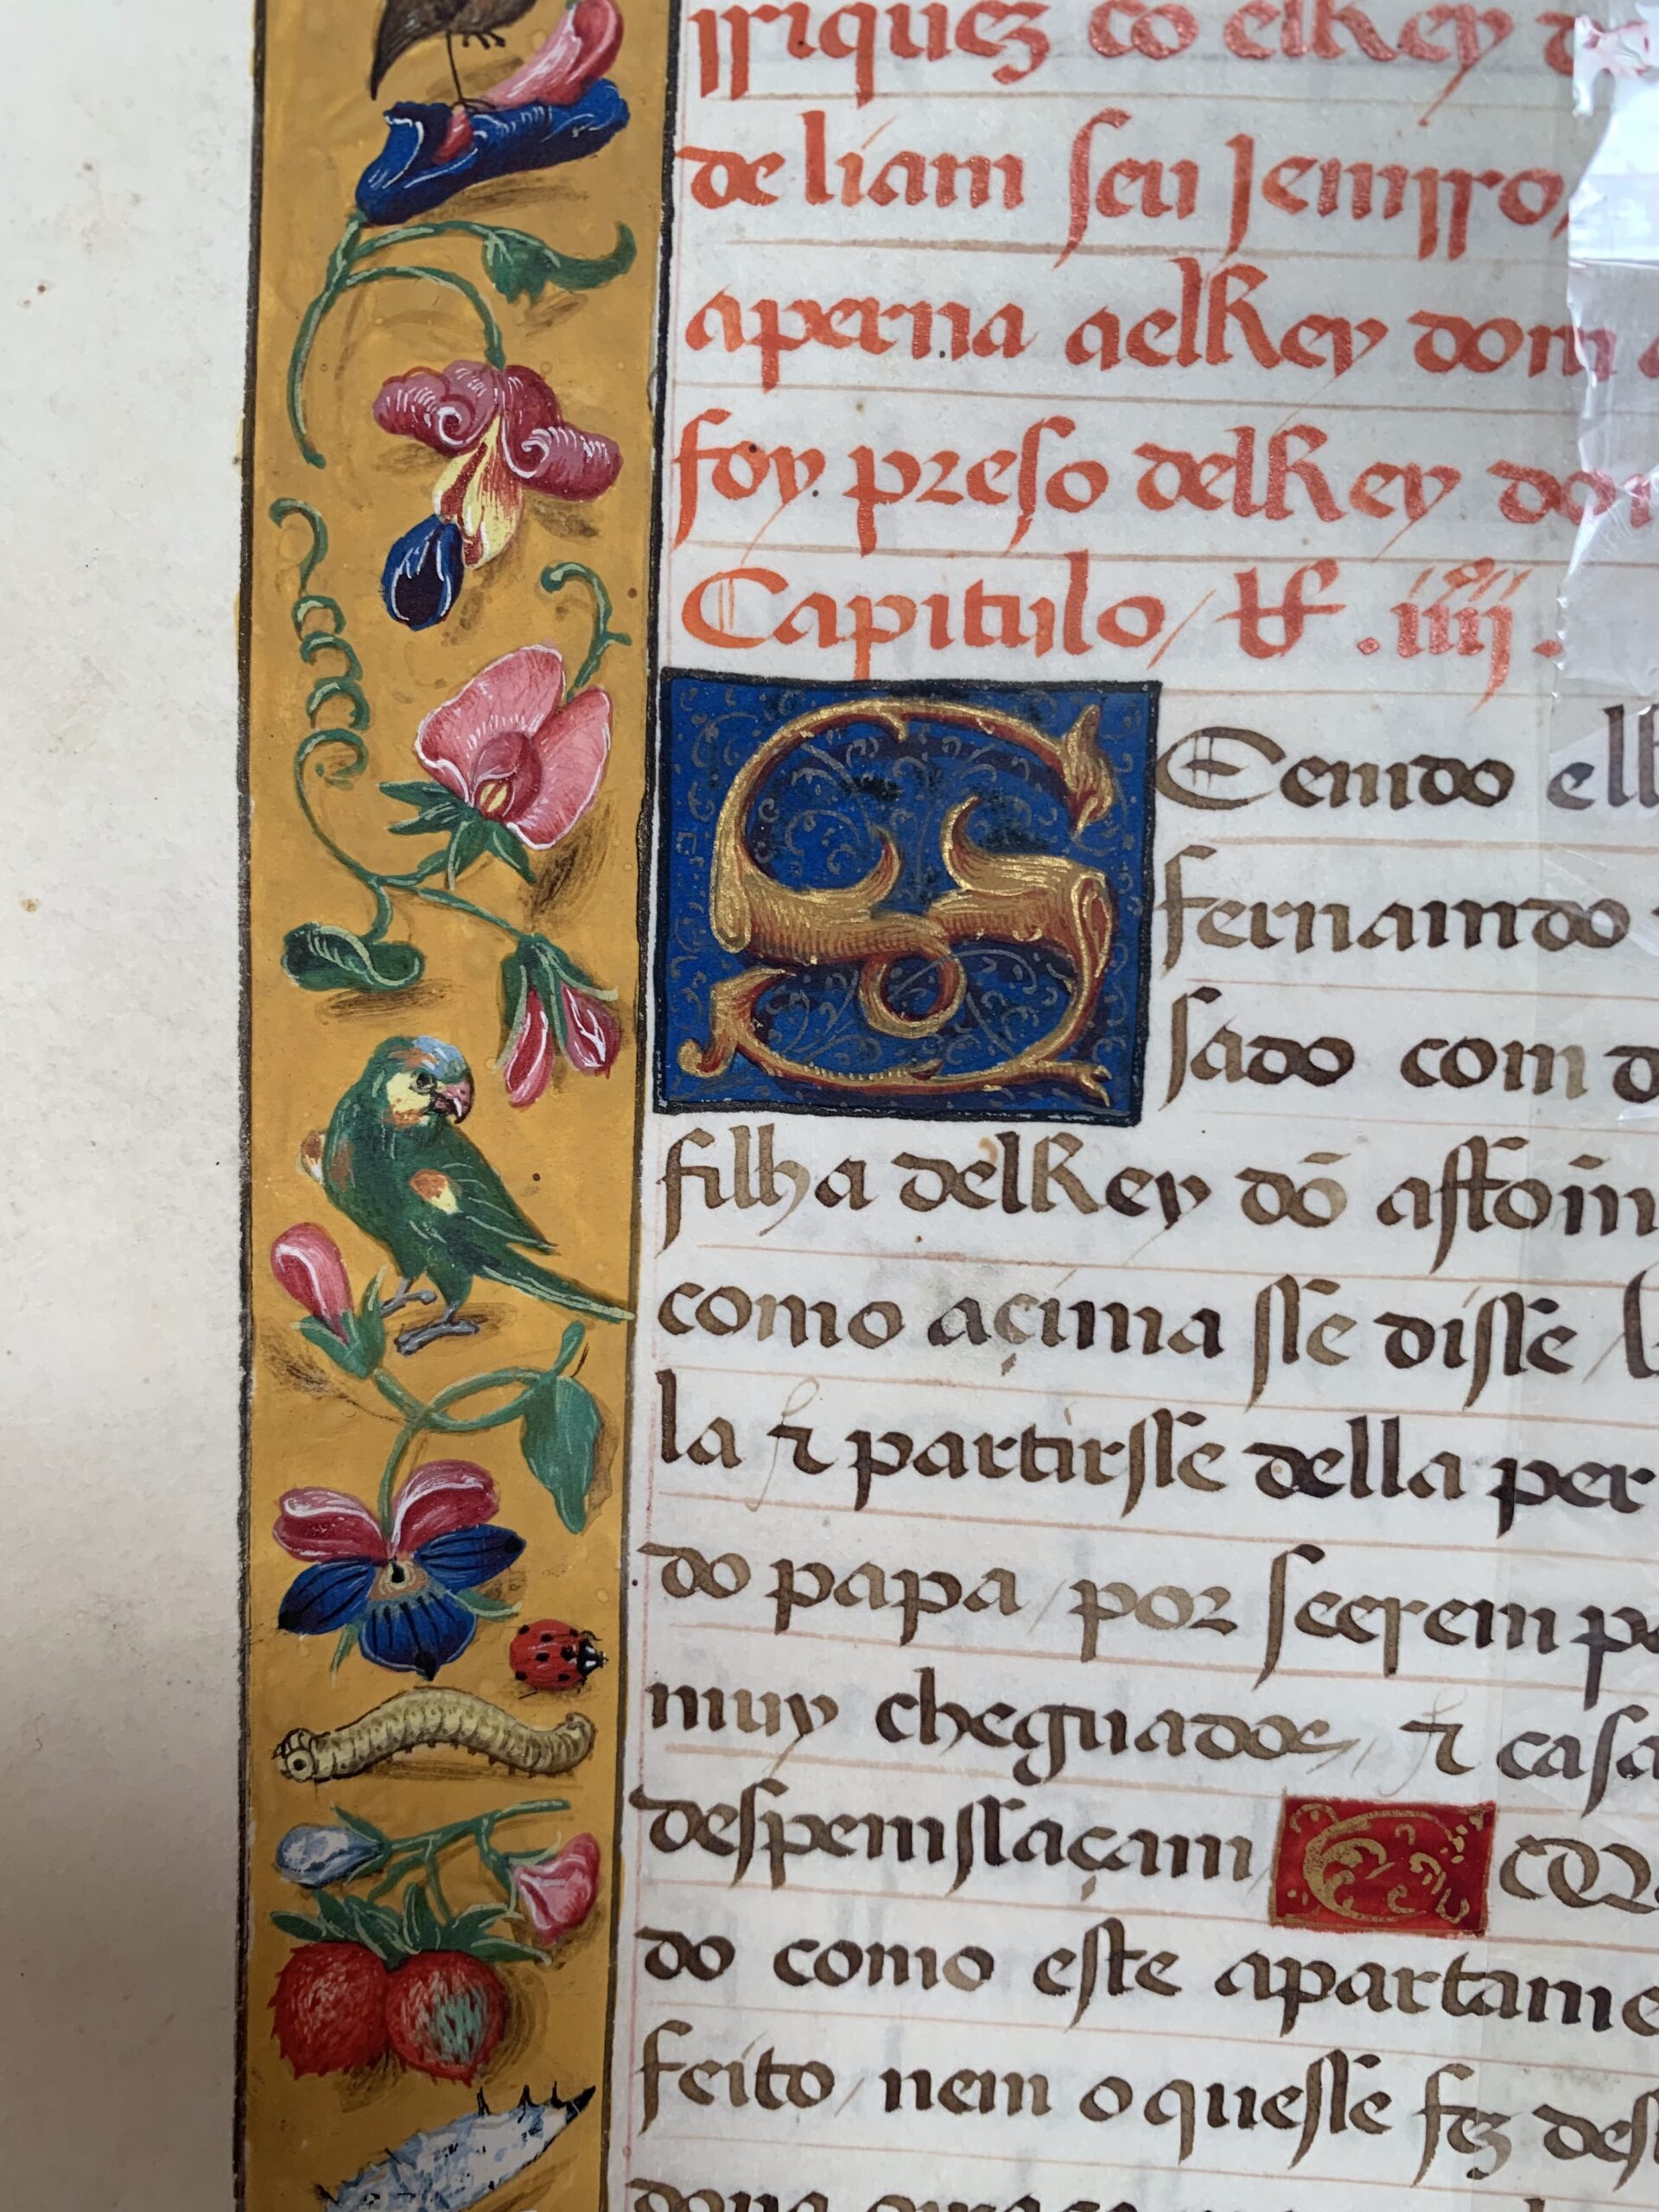 rriquez co elRey d
de liam seu Jemrro,
aperna aelRey dom a
foy preso delRey dom
Capitulo / .iiij.
SEemdo elR
fernamdo
sado com d
filha delRey dõ affom
como açima sse disse /
la & partirsse della per
do papa / por seerem pa
muy cheguados, & casa
despemssaçam /
do como este apartame
feito / nem o quesse fez des